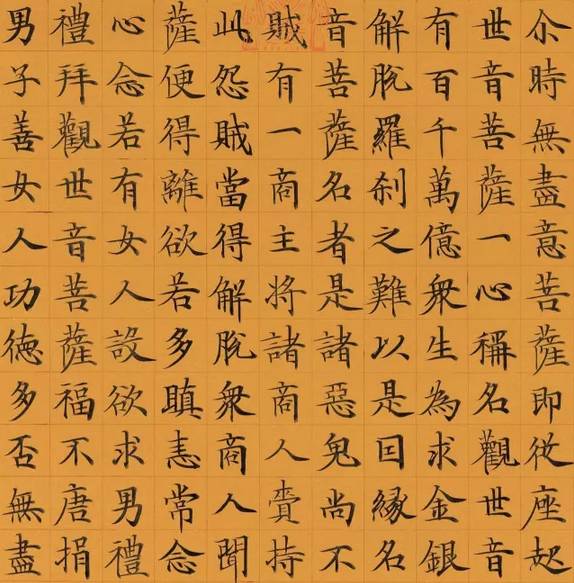 尒時無盡意菩薩即從座起
世音菩薩一心稱名觀世音
有百千萬億衆生為求金銀
解脫羅刹之難以是因緣名
音菩薩名者是諸惡鬼尚不
賊有一商主將諸商人賷持
此怨賊當得解脫衆商人聞
薩便得離欲若多瞋恚常念
心念若有女人設欲求男禮
禮拜觀世音菩薩福不唐捐
男子善女人功德多否無盡